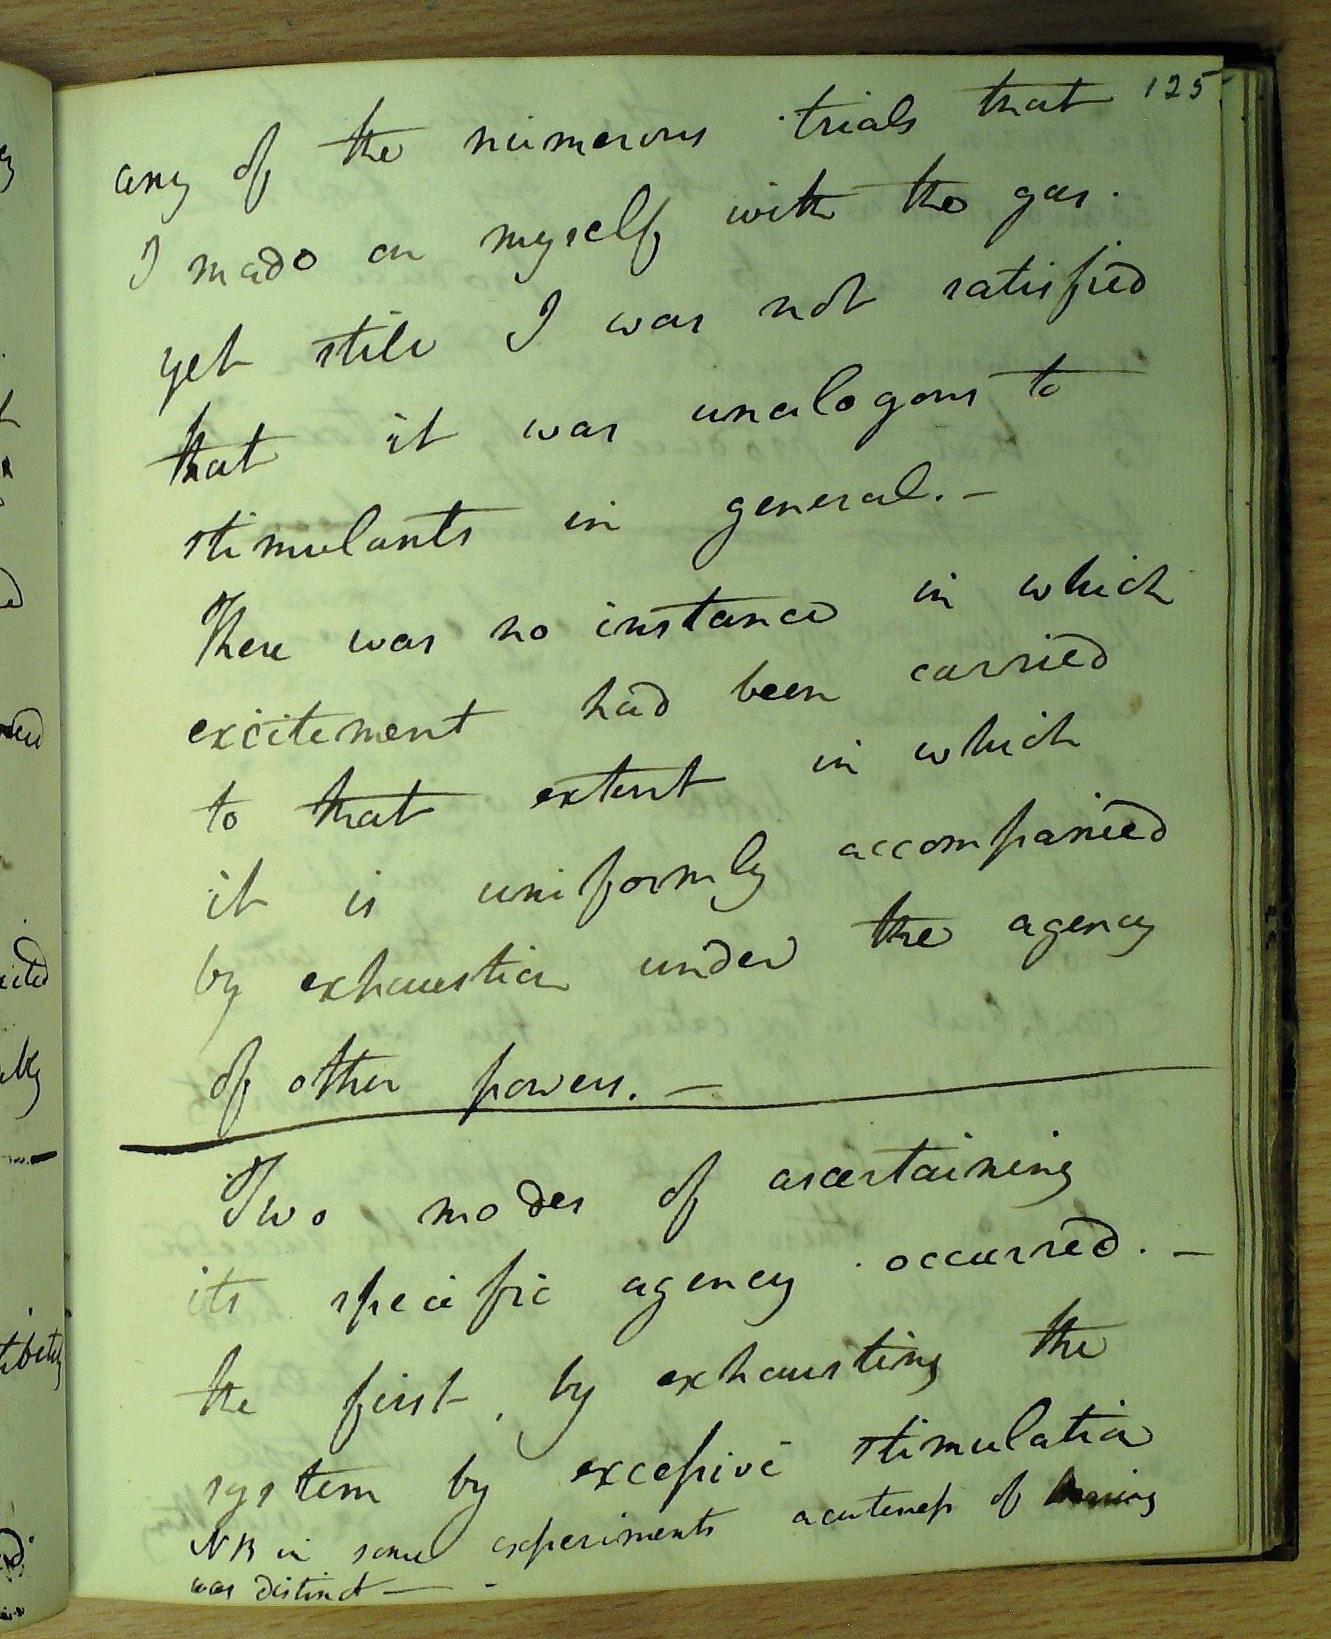 125
any of the numerous trials that
I made on myself with the gas.
yet still I was not satisfied
that it was analogous to
stimulants in general. –
There was no instance in which
excitement had been carried
to that extent in which
it is uniformly accompanied
by exhaustion under the agency
of other powers. –
Two modes of ascertaining
its specific agency occurred. –
the first, by exhausting the
system by excessive stimulation
NB in some experiments acuteness of hearing
was distinct –